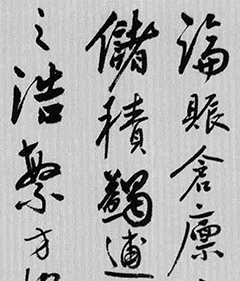 論賑倉廩
儲積蠲逋
之浩繁方